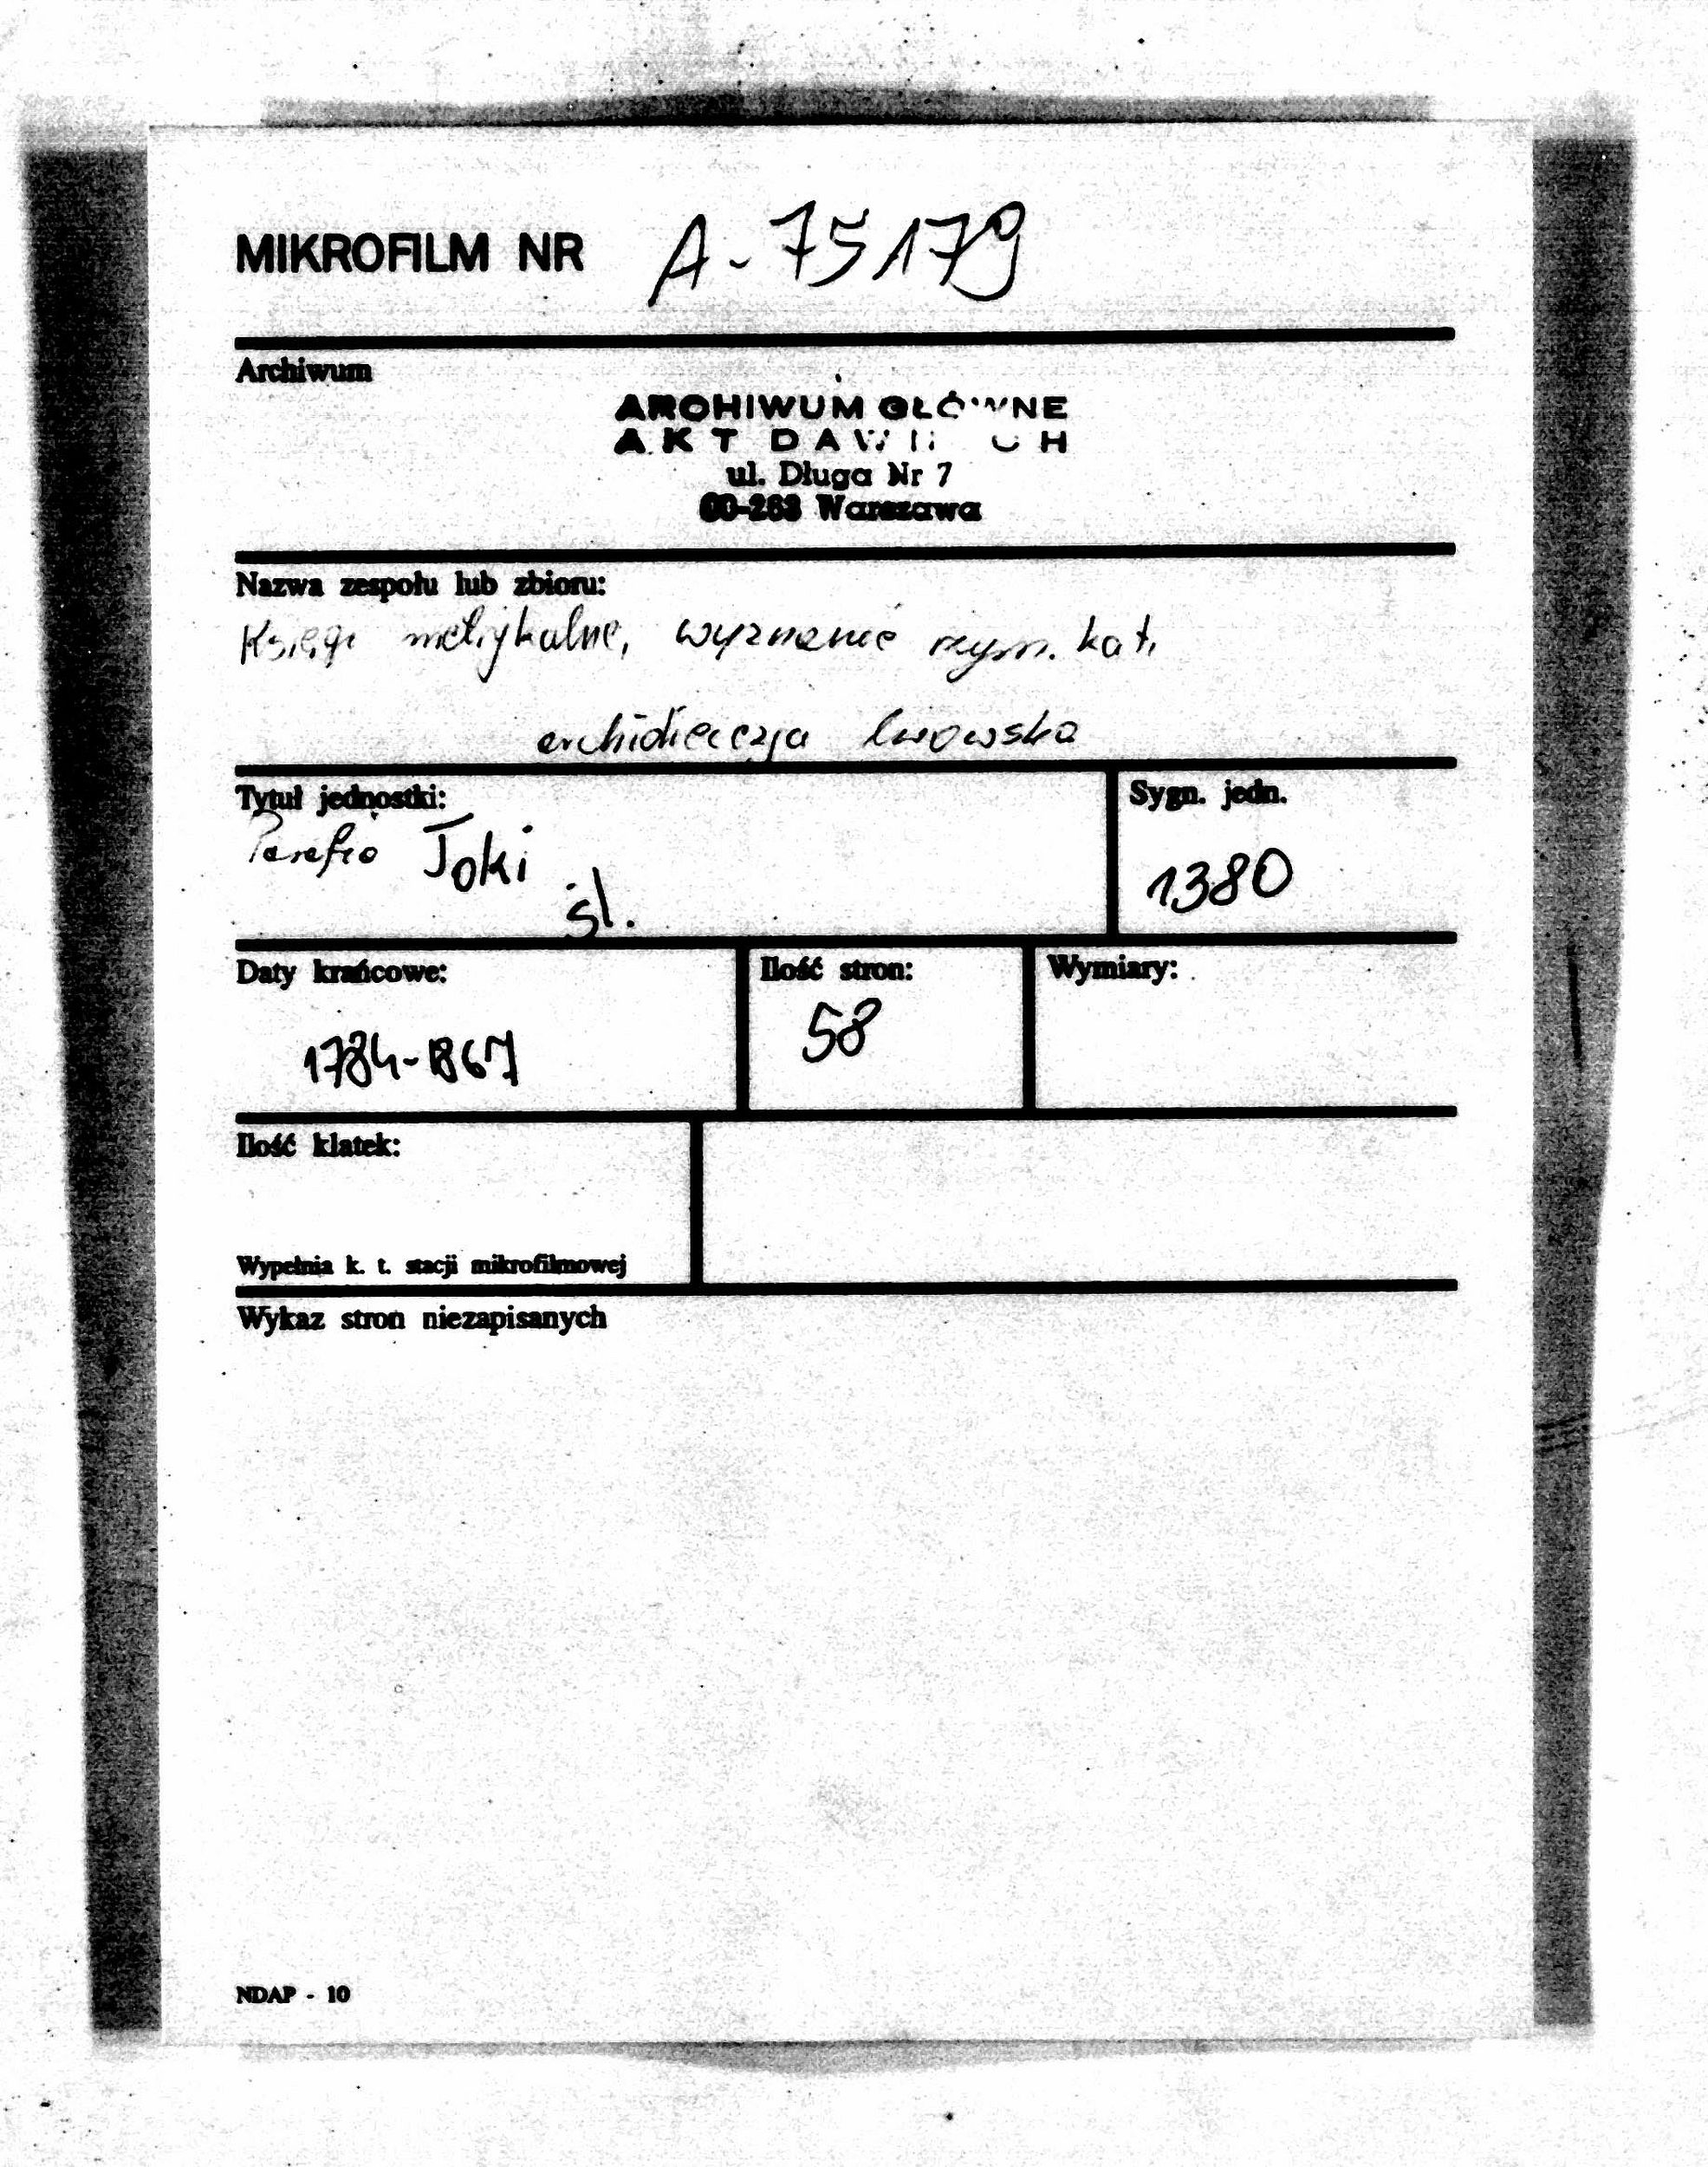 MIKROFILM NR A-75179
Archiwum
ARCHIWUM GŁÓWNE
AKT DAWNYCH
ul. Długa Nr 7
00-263 Warszawa
Nazwa zespołu lub zbioru:
Księgi metrykalne, wyznanie rzym. kat.
archidiecezja lwowska
Tytuł jednostki:
Sygn. jedn.
Parafia Toki
1380
śl.
Daty krańcowe:
Ilość stron:
Wymiary:
1784-1867
58
Ilość klatek:
Wypełnia k. t. stacji mikrofilmowej
Wykaz stron niezapisanych
NDAP - 10